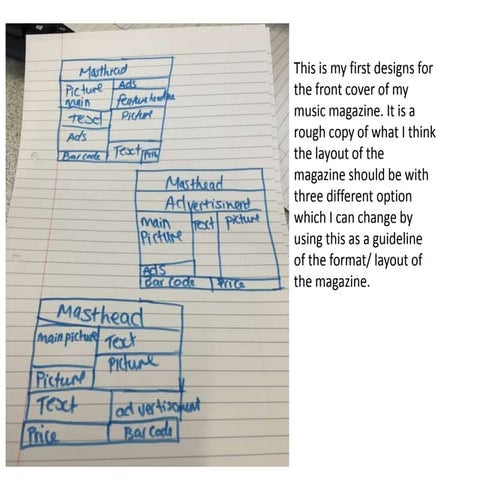 Masthead
Picture main
Ads
feature headline
Text
Picture
Ads
Barcode
Text
Price
Masthead
Advertisment
main Picture
Text
Picture
Ads
Bar code
Price
Masthead
main picture
Text
Picture
Picture
Text
advertisment
Price
Bar Code
This is my first designs for
the front cover of my
music magazine. It is a
rough copy of what I think
the layout of the
magazine should be with
three different option
which I can change by
using this as a guideline
of the format/ layout of
the magazine.